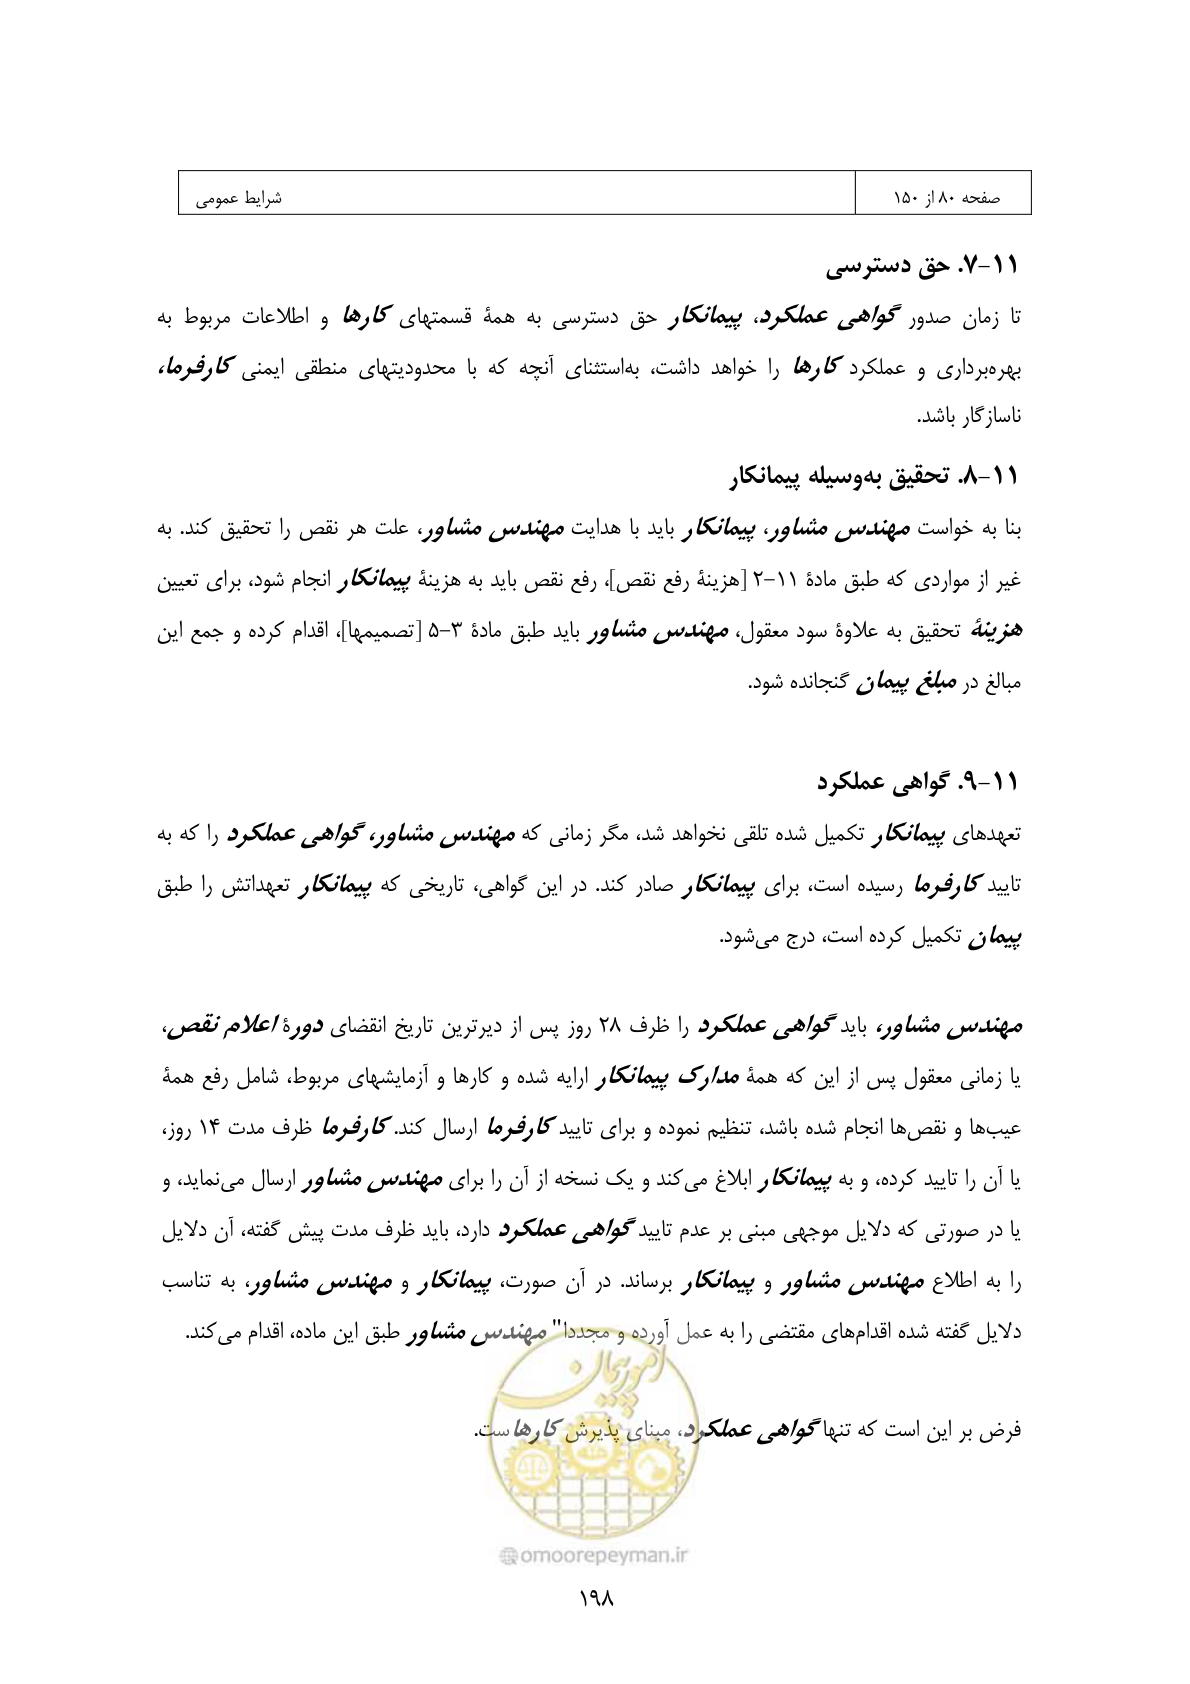 صفحه ۸۰ از ۱۵۰
شرایط عمومی
۱۱-۷. حق دسترسی
تا زمان صدور گواهی عملکرد، پیمانکار حق دسترسی به همهٔ قسمتهای کارها و اطلاعات مربوط به
بهره‌برداری و عملکرد کارها را خواهد داشت، به‌استثنای آنچه که با محدودیتهای منطقی ایمنی کارفرما،
ناسازگار باشد.
۱۱-۸. تحقیق به‌وسیله پیمانکار
بنا به خواست مهندس مشاور، پیمانکار باید با هدایت مهندس مشاور، علت هر نقص را تحقیق کند. به
غیر از مواردی که طبق مادهٔ ۱۱-۲ [هزینهٔ رفع نقص]، رفع نقص باید به هزینهٔ پیمانکار انجام شود، برای تعیین
هزینهٔ تحقیق به علاوهٔ سود معقول، مهندس مشاور باید طبق مادهٔ ۳-۵ [تصمیمها]، اقدام کرده و جمع این
مبالغ در مبلغ پیمان گنجانده شود.
۱۱-۹. گواهی عملکرد
تعهدهای پیمانکار تکمیل شده تلقی نخواهد شد، مگر زمانی که مهندس مشاور، گواهی عملکرد را که به
تایید کارفرما رسیده است، برای پیمانکار صادر کند. در این گواهی، تاریخی که پیمانکار تعهداتش را طبق
پیمان تکمیل کرده است، درج می‌شود.
مهندس مشاور، باید گواهی عملکرد را ظرف ۲۸ روز پس از دیرترین تاریخ انقضای دورهٔ اعلام نقص،
یا زمانی معقول پس از این که همهٔ مدارک پیمانکار ارایه شده و کارها و آزمایشهای مربوط، شامل رفع همهٔ
عیب‌ها و نقص‌ها انجام شده باشد، تنظیم نموده و برای تایید کارفرما ارسال کند. کارفرما ظرف مدت ۱۴ روز،
یا آن را تایید کرده، و به پیمانکار ابلاغ می‌کند و یک نسخه از آن را برای مهندس مشاور ارسال می‌نماید، و
یا در صورتی که دلایل موجهی مبنی بر عدم تایید گواهی عملکرد دارد، باید ظرف مدت پیش گفته، آن دلایل
را به اطلاع مهندس مشاور و پیمانکار برساند. در آن صورت، پیمانکار و مهندس مشاور، به تناسب
دلایل گفته شده اقدام‌های مقتضی را به عمل آورده و مجددا" مهندس مشاور طبق این ماده، اقدام می‌کند.
امور پیمان
فرض بر این است که تنها گواهی عملکرد، مبنای پذیرش کارهاست.
@omoorepeyman.ir
۱۹۸